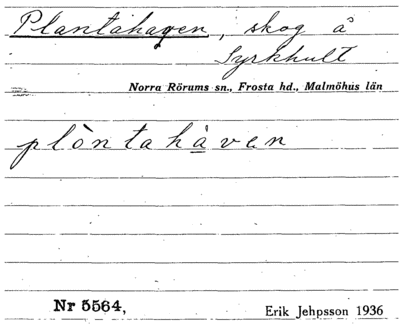 Plantahagen, skog å
Syrkhult
Norra Rörums sn., Frosta hd., Malmöhus län
plòntahàven
Nr 5564,
Erik Jehpsson 1936